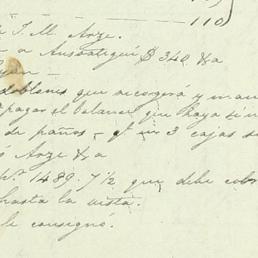 110)
J. M. Arze.
a Ansoategui $ 340. &a
doblones que recogerá y man
pagar el balance que haya si n
de paños - y un 3 cajas se
ó Arze &a
1489. 7 1/2 que debe cobr
hasta la vista.
le consignó.